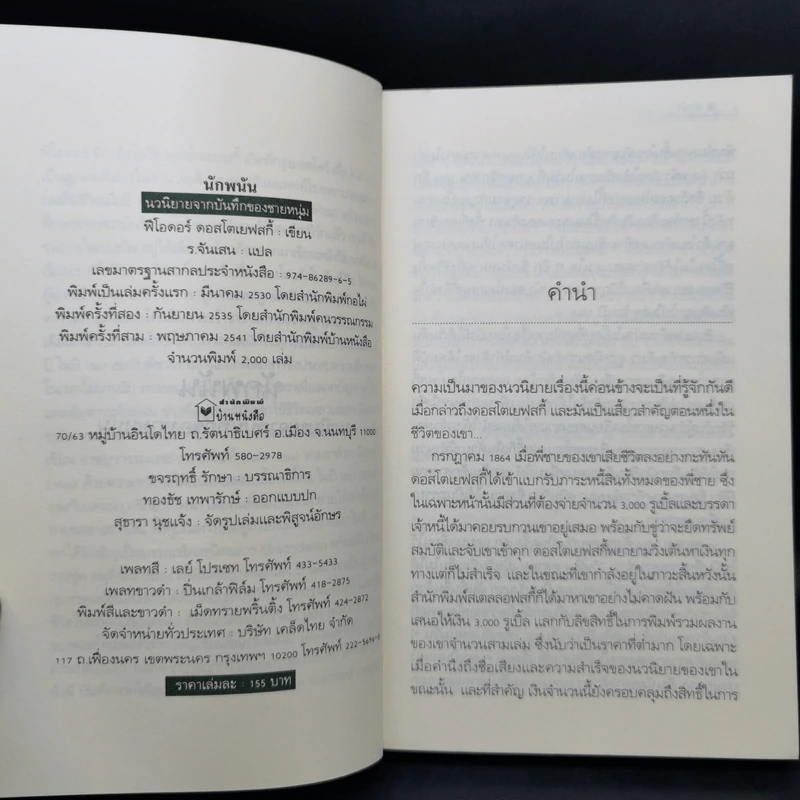 นักพนัน
นวนิยายจากบันทึกของชายหนุ่ม
ฟีโอดอร์ ดอสโตเยฟสกี้ : เขียน
ร.จันเสน : แปล
เลขมาตรฐานสากลประจำหนังสือ : 974-86289-6-5
พิมพ์เป็นเล่มครั้งแรก : มีนาคม 2530 โดยสำนักพิมพ์กอไผ่
พิมพ์ครั้งที่สอง : กันยายน 2535 โดยสำนักพิมพ์คนวรรณกรรม
พิมพ์ครั้งที่สาม : พฤษภาคม 2541 โดยสำนักพิมพ์บ้านหนังสือ
จำนวนพิมพ์ 2,000 เล่ม
สำนักพิมพ์
บ้านหนังสือ
70/63 หมู่บ้านอินโดไทย ถ.รัตนาธิเบศร์ อ.เมือง จ.นนทบุรี 11000
โทรศัพท์ 580-2978
ขจรฤทธิ์ รักษา : บรรณาธิการ
ทองธัช เทพารักษ์ : ออกแบบปก
สุธารา นุชแจ้ง : จัดรูปเล่มและพิสูจน์อักษร
เพลทสี : เลย์ โปรเซท โทรศัพท์ 433-5433
เพลทขาวดำ : ปิ่นเกล้าฟิล์ม โทรศัพท์ 418-2875
พิมพ์สีและขาวดำ : เม็ดทรายพริ้นติ้ง โทรศัพท์ 424-2872
จัดจำหน่ายทั่วประเทศ : บริษัท เคล็ดไทย จำกัด
117 ถ.เฟื่องนคร เขตพระนคร กรุงเทพฯ 10200 โทรศัพท์
ราคาเล่มละ : 155 บาท
คำนำ
ความเป็นมาของนวนิยายเรื่องนี้ค่อนข้างจะเป็นที่รู้จักกันดี
เมื่อกล่าวถึงดอสโตเยฟสกี้ และมันเป็นเสี้ยวสำคัญตอนหนึ่งใน
ชีวิตของเขา...
กรกฎาคม 1864 เมื่อพี่ชายของเขาเสียชีวิตลงอย่างกะทันหัน
ดอสโตเยฟสกี้ได้เข้าแบกรับภาระหนี้สินทั้งหมดของพี่ชาย ซึ่ง
ในเฉพาะหน้านั้นมีส่วนที่ต้องจ่ายจำนวน 3,000 รูเบิ้ลและบรรดา
เจ้าหนี้ได้มาคอยรบกวนเขาอยู่เสมอ พร้อมกับขู่ว่าจะยึดทรัพย์
สมบัติและจับเขาเข้าคุก ดอสโตเยฟสกี้พยายามวิ่งเต้นหาเงินทุก
ทางแต่ก็ไม่สำเร็จ และในขณะที่เขากำลังอยู่ในภาวะสิ้นหวังนั้น
สำนักพิมพ์สเตลลอฟสกี้ก็ได้มาหาเขาอย่างไม่คาดฝัน พร้อมกับ
เสนอให้เงิน 3,000 รูเบิ้ล แลกกับลิขสิทธิ์ในการพิมพ์รวมผลงาน
ของเขาจำนวนสามเล่ม ซึ่งนับว่าเป็นราคาที่ต่ำมาก โดยเฉพาะ
เมื่อคำนึงถึงชื่อเสียงและความสำเร็จของนวนิยายของเขาใน
ขณะนั้น และที่สำคัญ เงินจำนวนนี้ยังครอบคลุมถึงสิทธิ์ในการ